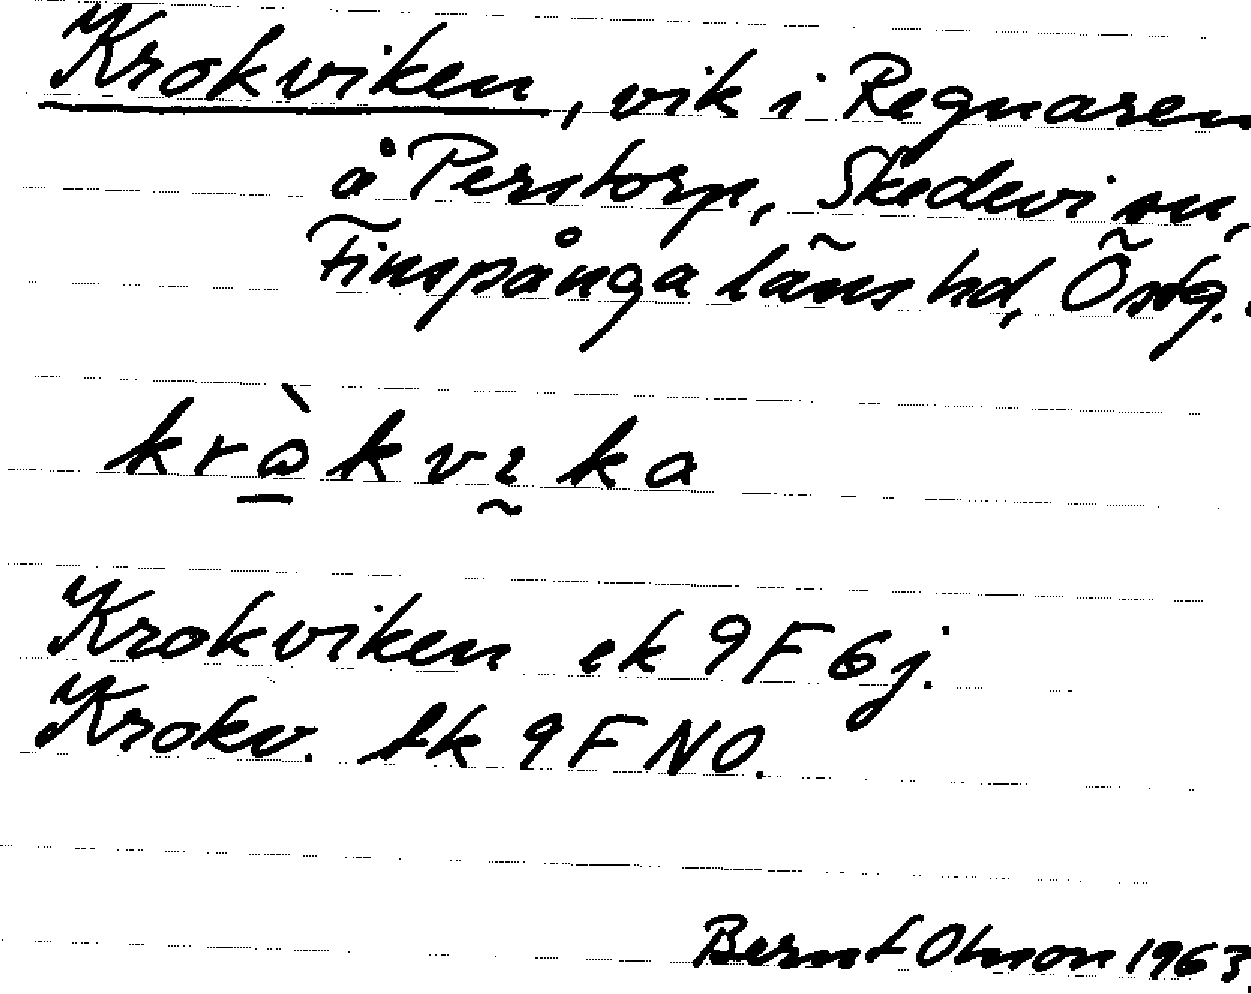 Krokviken, vik i Regnaren
å Perstorp, Skedevi sn,
Finspånga läns hd, Östg.
kràkvıka
Krokviken ek 9F 6j.
Krokv. tk 9F NO.
Bernt Olsson 1963.